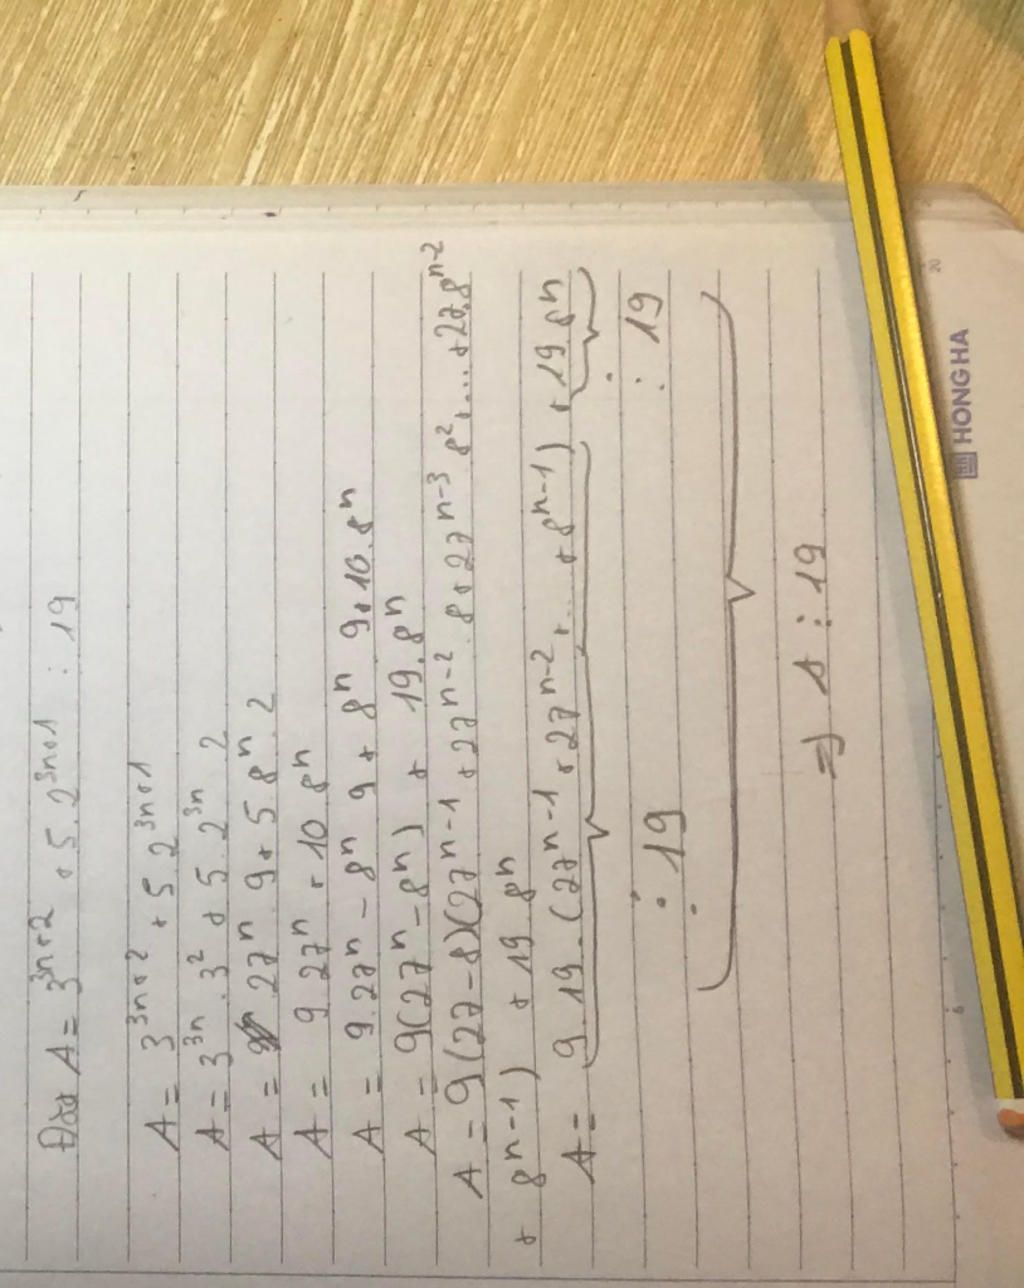 Đặt A = 3^{3n+2} + 5.2^{3n+1} ⋮ 19
A = 3^{3n+2} + 5.2^{3n+1}
A = 3^{3n}.3^2 + 5.2^{3n}.2
A = 27^n.9 + 5.8^n.2
A = 9.27^n + 10.8^n
A = 9.27^n - 8^n.9 + 8^n.9 + 10.8^n
A = 9(27^n - 8^n) + 19.8^n
A = 9(27-8)(27^{n-1} + 27^{n-2}.8 + 27^{n-3}.8^2 + ... + 27.8^{n-2}
+ 8^{n-1}) + 19.8^n
A = 9.19.(27^{n-1} + 27^{n-2} + ... + 8^{n-1}) + 19.8^n
⋮ 19 ⋮ 19
=> A ⋮ 19
HONG HA
6
20